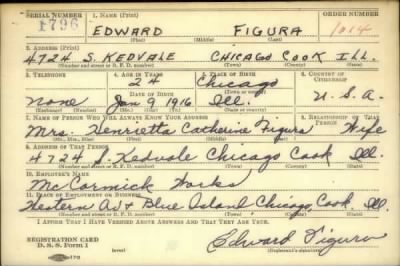 SERIAL NUMBER 1. NAME (Print) ORDER NUMBER
1796 EDWARD FIGURA 1014
(First) (Middle) (Last)
2. ADDRESS (Print)
4724 S. KEDVALE CHICAGO COOK ILL.
(Number and street or R. F. D. number) (Town) (County) (State)
3. TELEPHONE 4. AGE IN YEARS 5. PLACE OF BIRTH 6. COUNTRY OF CITIZENSHIP
24 Chicago
None DATE OF BIRTH Jan 9 1916 Ill. U.S.A.
(Exchange) (Number) (Mo.) (Day) (Yr.) (State or country)
7. NAME OF PERSON WHO WILL ALWAYS KNOW YOUR ADDRESS 8. RELATIONSHIP OF THAT PERSON
Mrs. Henrietta Catherine Figura Wife
(Mr., Mrs., Miss) (First) (Middle) (Last)
9. ADDRESS OF THAT PERSON
4724 S. Kedvale Chicago Cook Ill.
(Number and street or R. F. D. number) (Town) (County) (State)
10. EMPLOYER'S NAME
McCormick Works
11. PLACE OF EMPLOYMENT OR BUSINESS
Western Av & Blue Island Chicago, Cook. Ill.
(Number and street or R. F. D. number) (Town) (County) (State)
I AFFIRM THAT I HAVE VERIFIED ABOVE ANSWERS AND THAT THEY ARE TRUE.
REGISTRATION CARD
D. S. S. Form 1 (over) Edward Figura
(Registrant's signature)